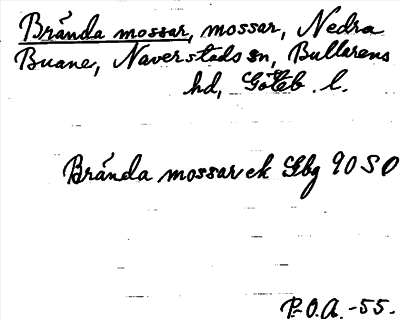 Brända mossar, mossar, Nedra
Buane, Naverstads sn, Bullarens
hd, Göteb. l.
Brända mossar ek Gbg 90 SO
P.O.A.-55.